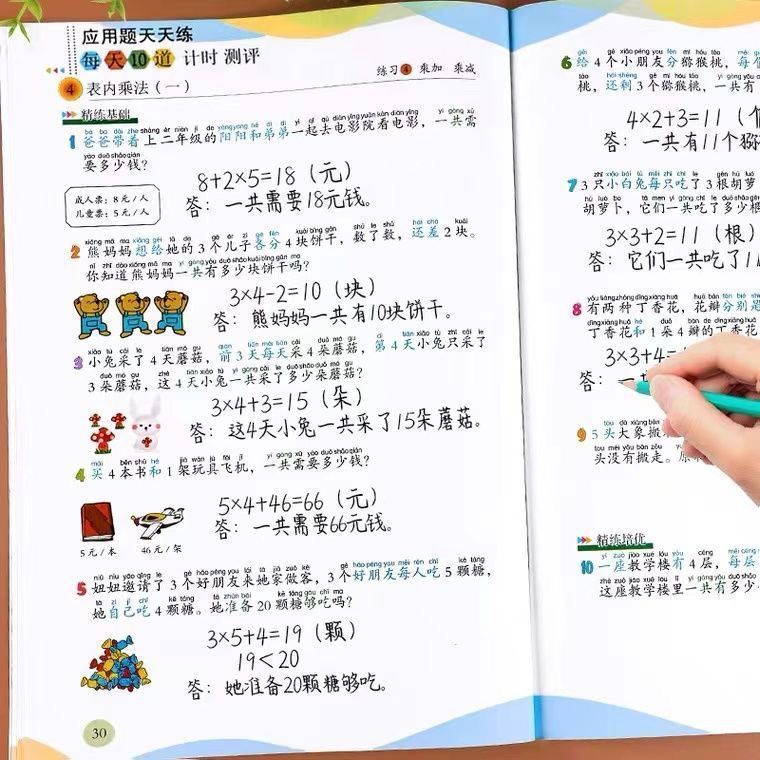 应用题天天练
每天10道 计时 测评
练习4 乘加 乘减
4 表内乘法（一）
精练基础
1 爸爸带着上二年级的阳阳和弟弟一起去电影院看电影，一共需
要多少钱？
成人票：8元/人
儿童票：5元/人
8+2×5=18（元）
答：一共需要18元钱。
2 熊妈妈想给她的3个儿子各分4块饼干，数了数，还差2块。
你知道熊妈妈一共有多少块饼干吗？
3×4-2=10（块）
答：熊妈妈一共有10块饼干。
3 小兔采了4天蘑菇，前3天每天采4朵蘑菇，第4天小兔只采了
3朵蘑菇，这4天小兔一共采了多少朵蘑菇？
3×4+3=15（朵）
答：这4天小兔一共采了15朵蘑菇。
4 买4本书和1架玩具飞机，一共需要多少钱？
5元/本 46元/架
5×4+46=66（元）
答：一共需要66元钱。
5 妞妞邀请了3个好朋友来她家做客，3个好朋友每人吃5颗糖，
她自己吃4颗糖。她准备20颗糖够吃吗？
3×5+4=19（颗）
19<20
答：她准备20颗糖够吃。
30
6 给4个小朋友分猕猴桃，每个
桃，还剩3个猕猴桃，一共有
4×2+3=11（
答：一共有11个猕
7 3只小白兔每只吃了3根胡萝
胡萝卜，它们一共吃了多少根
3×3+2=11（根）
答：它们一共吃了11
8 有两种丁香花，花瓣分别是
丁香花和1朵4瓣的丁香花
3×3+4=
答：一
9 5头大象搬
头没有搬走。原
精练培优
10 一座教学楼有4层，每层
这座教学楼里一共有多少